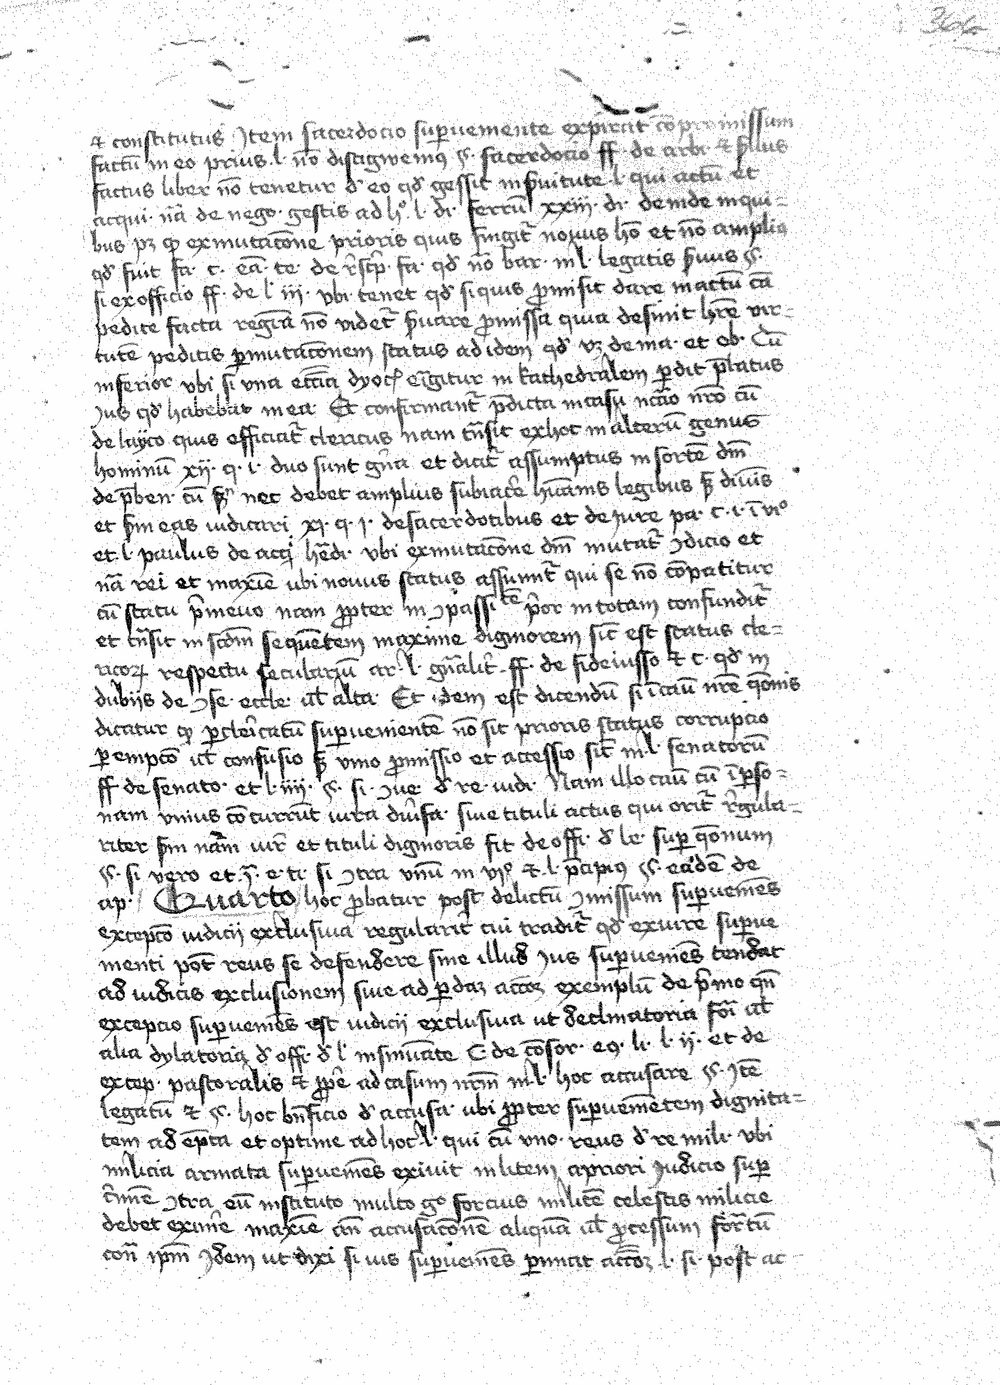 & constitutus Item sacerdocio superueniente expirat compromissum
factū in eo prius. l. nō distigwemꝰ §. sacerdocio ff. de arbi. & ẜuus
factus liber nō tenetur đ eo qđ gessit in ẜuitute. l. qui actū et
acqui. nā de nego. gestis ad hͦ. l. di. ferrū xxiii. di. deinde in qui=
bus pꝫ ꝙ ex mutacōne prioris quis fingit᷑ nouus hō et nō ampliꝰ
qđ fuit fa. c. eā. te. de r̄scrip̄. fa. qđ nō bar. in l. legatis ẜuus §.
si ex officio ff. de l. iii. vbi tenet qđ si quis ꝓmisit dare in actū cā
pedite facta regīa nō videt᷑ ẜuare ꝓmissa quia desinit hr̄e vir=
tutē peditis ꝑmutacōnem status ad idem qđ vꝫ de ma. et ob. Cū
inferior vbi si vna eccīa dyoc̄ eīgitur in kathedralem ꝑdit p̄latus
ius qđ habebat in ea Et confirmant᷑ p̄dicta in casu nc̄io nr̄o cū
de layco quis efficiat᷑ clericus nam tn̄sit ex hoc in alterū genus
hominū xij. q. i. duo sunt gn̄a et dicit᷑ assumptus in sortē dn̄i
de p̄ben. cū ẜm nec debet amplius subiacē hūanis legibus ẜꝫ diuīs
et ẜm eas iudicari xi. q. i. de sacerdotibus et de iure pa. c. i. ī viͦ
et. l. paulus de acq̄ hēdi. vbi ex mutacōne dn̄i mutat᷑ ɔdicio et
nā rei et maxīe ubi nouus status assumit᷑ qui se nō cōpatitur
cū statu p̄meuo nam ꝓpter in ɔpassi tē p̄or in totam confundit᷑
et tn̄sit in scdm̄ sequētem maxime digniorem sic̄ est status cle=
ricoꝝ respectu seculariū ar. l. gn̄alit̄. ff. de fideiusso & c. qđ in
dubijs de ɔse. eccle. ul̄ alta. Et idem est dicendū si ī cāu nr̄e q̄onis
dicatur ꝙ ꝑ clericatū suꝑuenientē nō sit prioris status corrupcio
ꝑempcō ul̄ confusio ẜꝫ vnio ꝓmissio et accessio sic̄ in. l. senatorū
ff de senato. et l. iiii. §. si. ɔue. đ re. iudi. Nam illo cāu cū ī ꝑso=
nam vnius cōcurrūt iura diūsa. siue tituli actus qui orit᷑ r̄gula=
riter ẜm nām iur̄ et tituli dignioris fit de offi. đ le. suꝑ q̄onum
§. si vero et. q̄. e. ti. si ɔtra vnū in viͦ & l. p̄apiꝰ §. eādē de
ap. Quarto hoc ꝓbatur post delictū ɔmissum suꝑueniēs
excepcō iudicij exclusiua regularit᷑ cui tradit᷑ qđ exuire suꝑue
nienti pōt reus se defendere siue illud ius suꝑueniēs tendat
ad iudicis exclusionem siue ad ꝑdaꝫ acc̄oꝫ exemplū de p̄mo qn̄
excepcio suꝑueniēs est iudicij exclusiua ut declinatoria fori ul̄
alia dylatoria đ offi. đ l. insinuāte C. de cōsor. eꝰ. li. l. ii. et de
excep. pastoralis & ꝓpē ad casum nr̄m in. l. hoc accusare §. Itē
legatū & §. hoc bn̄ficio đ accusa. ubi ꝓpter suꝑuenietem dignita=
tem ad ep̄ta et optime ad hoc. l. qui cū vno. reus đ re mili. vbi
milicia armata suꝑueniēs exiuit militem a priori iudicio suꝑ
c̄mīe ɔtra eū instituto multo gͦ forcius militē celestis milicie
debet eximē maxīe an̄ accusacōnē aliquā ul̄ ꝓcessum for̄tū
con̄ ip̄m Idem ut dixi si ius suꝑueniēs ꝑimat acc̄oꝫ. l. si. post ac=